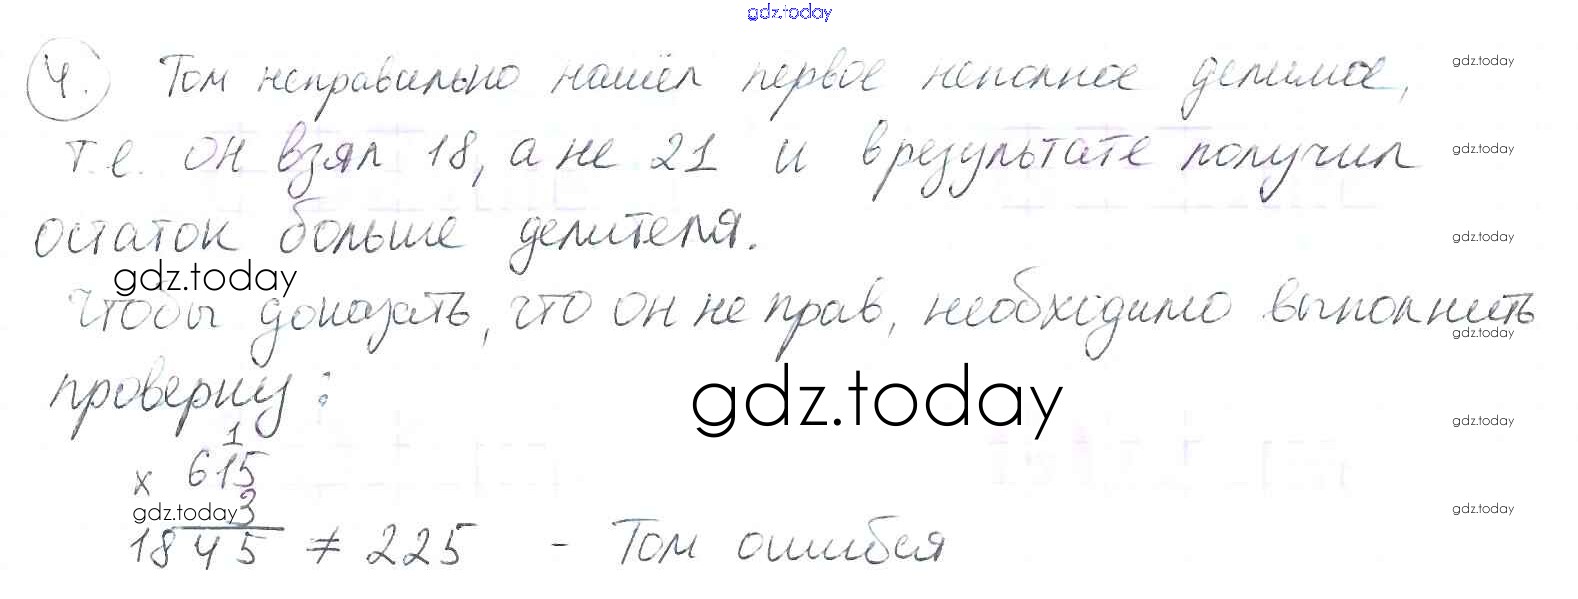 gdz.today
4. Том неправильно нашёл первое неполное делимое, gdz.today
т.е. он взял 18, а не 21 и в результате получил gdz.today
остаток больше делителя. gdz.today
gdz.today
Чтобы доказать, что он не прав, необходимо выполнить gdz.today
проверку: gdz.today
gdz.today
1
x 615
gdz.today 3 gdz.today
1845 ≠ 225 - Том ошибся